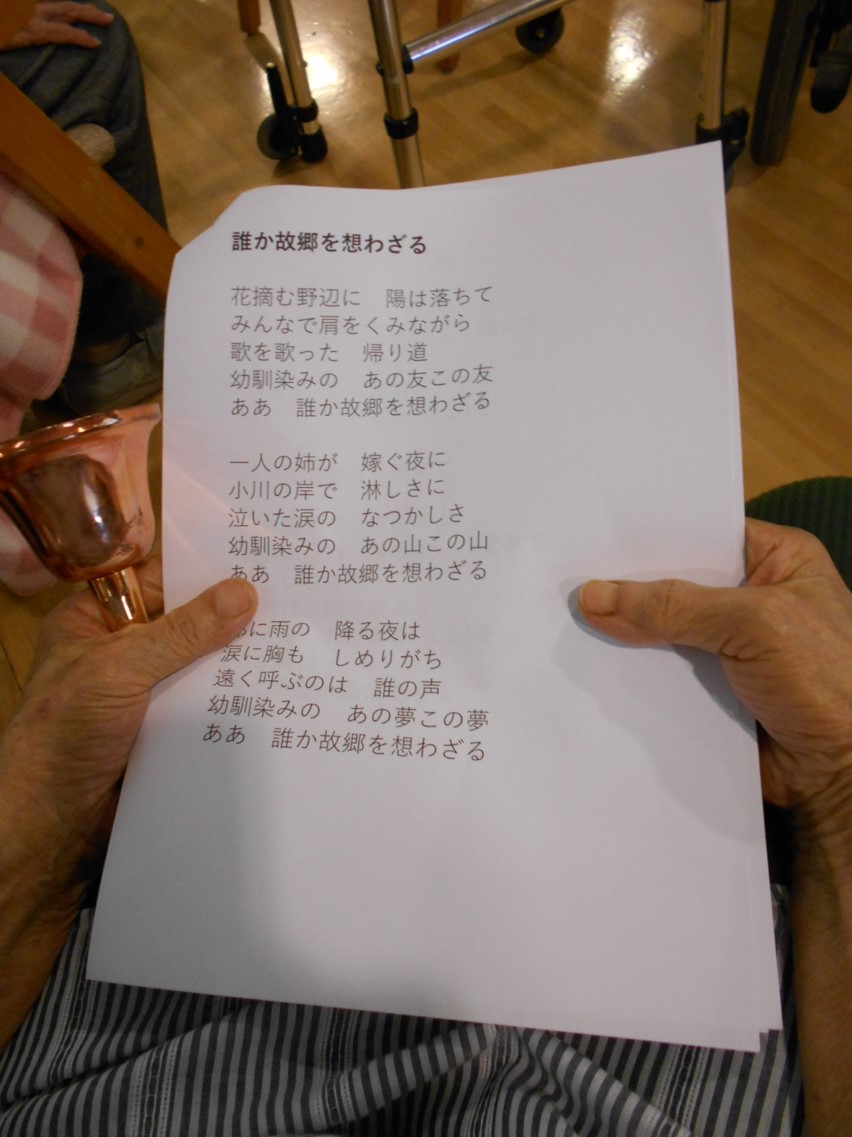 誰か故郷を想わざる
花摘む野辺に　陽は落ちて
みんなで肩をくみながら
歌を歌った　帰り道
幼馴染みの　あの友この友
ああ　誰か故郷を想わざる
一人の姉が　嫁ぐ夜に
小川の岸で　淋しさに
泣いた涙の　なつかしさ
幼馴染みの　あの山この山
ああ　誰か故郷を想わざる
に雨の　降る夜は
涙に胸も　しめりがち
遠く呼ぶのは　誰の声
幼馴染みの　あの夢この夢
ああ　誰か故郷を想わざる